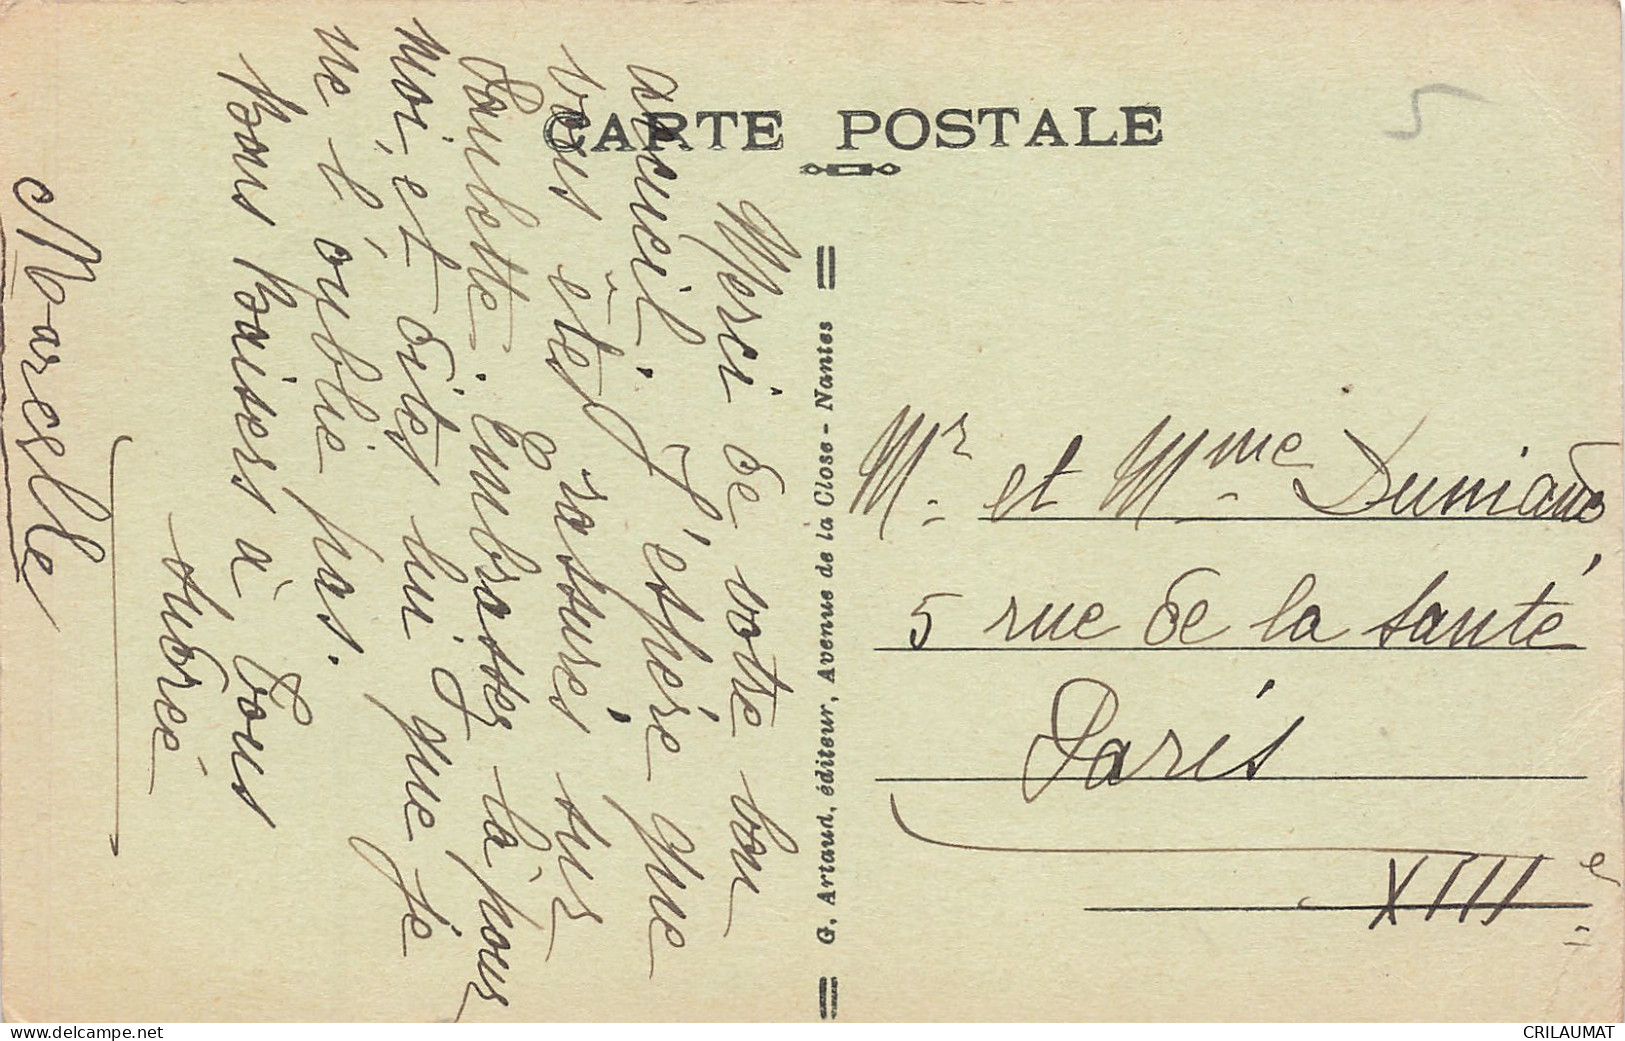 CARTE POSTALE
5
Merci de votre bon
accueil. J'espère que
vous êtes rassurés sur
Paulette. Embrassez la pour
moi, et dites lui que je
ne l'oublie pas.
Bons Baisers à tous
Andrée
Marcelle
G. Artaud, éditeur, Avenue de la Close - Nantes
Mr. et Mme
5 rue de la Santé
Paris
XIIIe
www.delcampe.net
CRILAUMAT